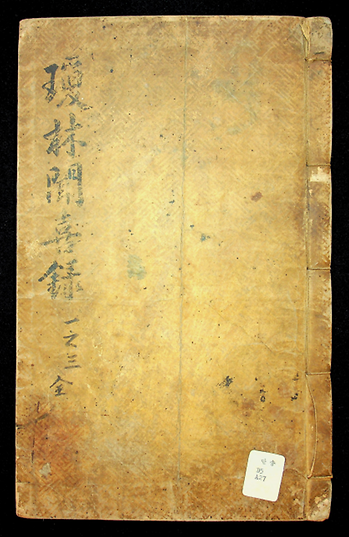 瓊林聞喜錄 一之三 全
95
A27